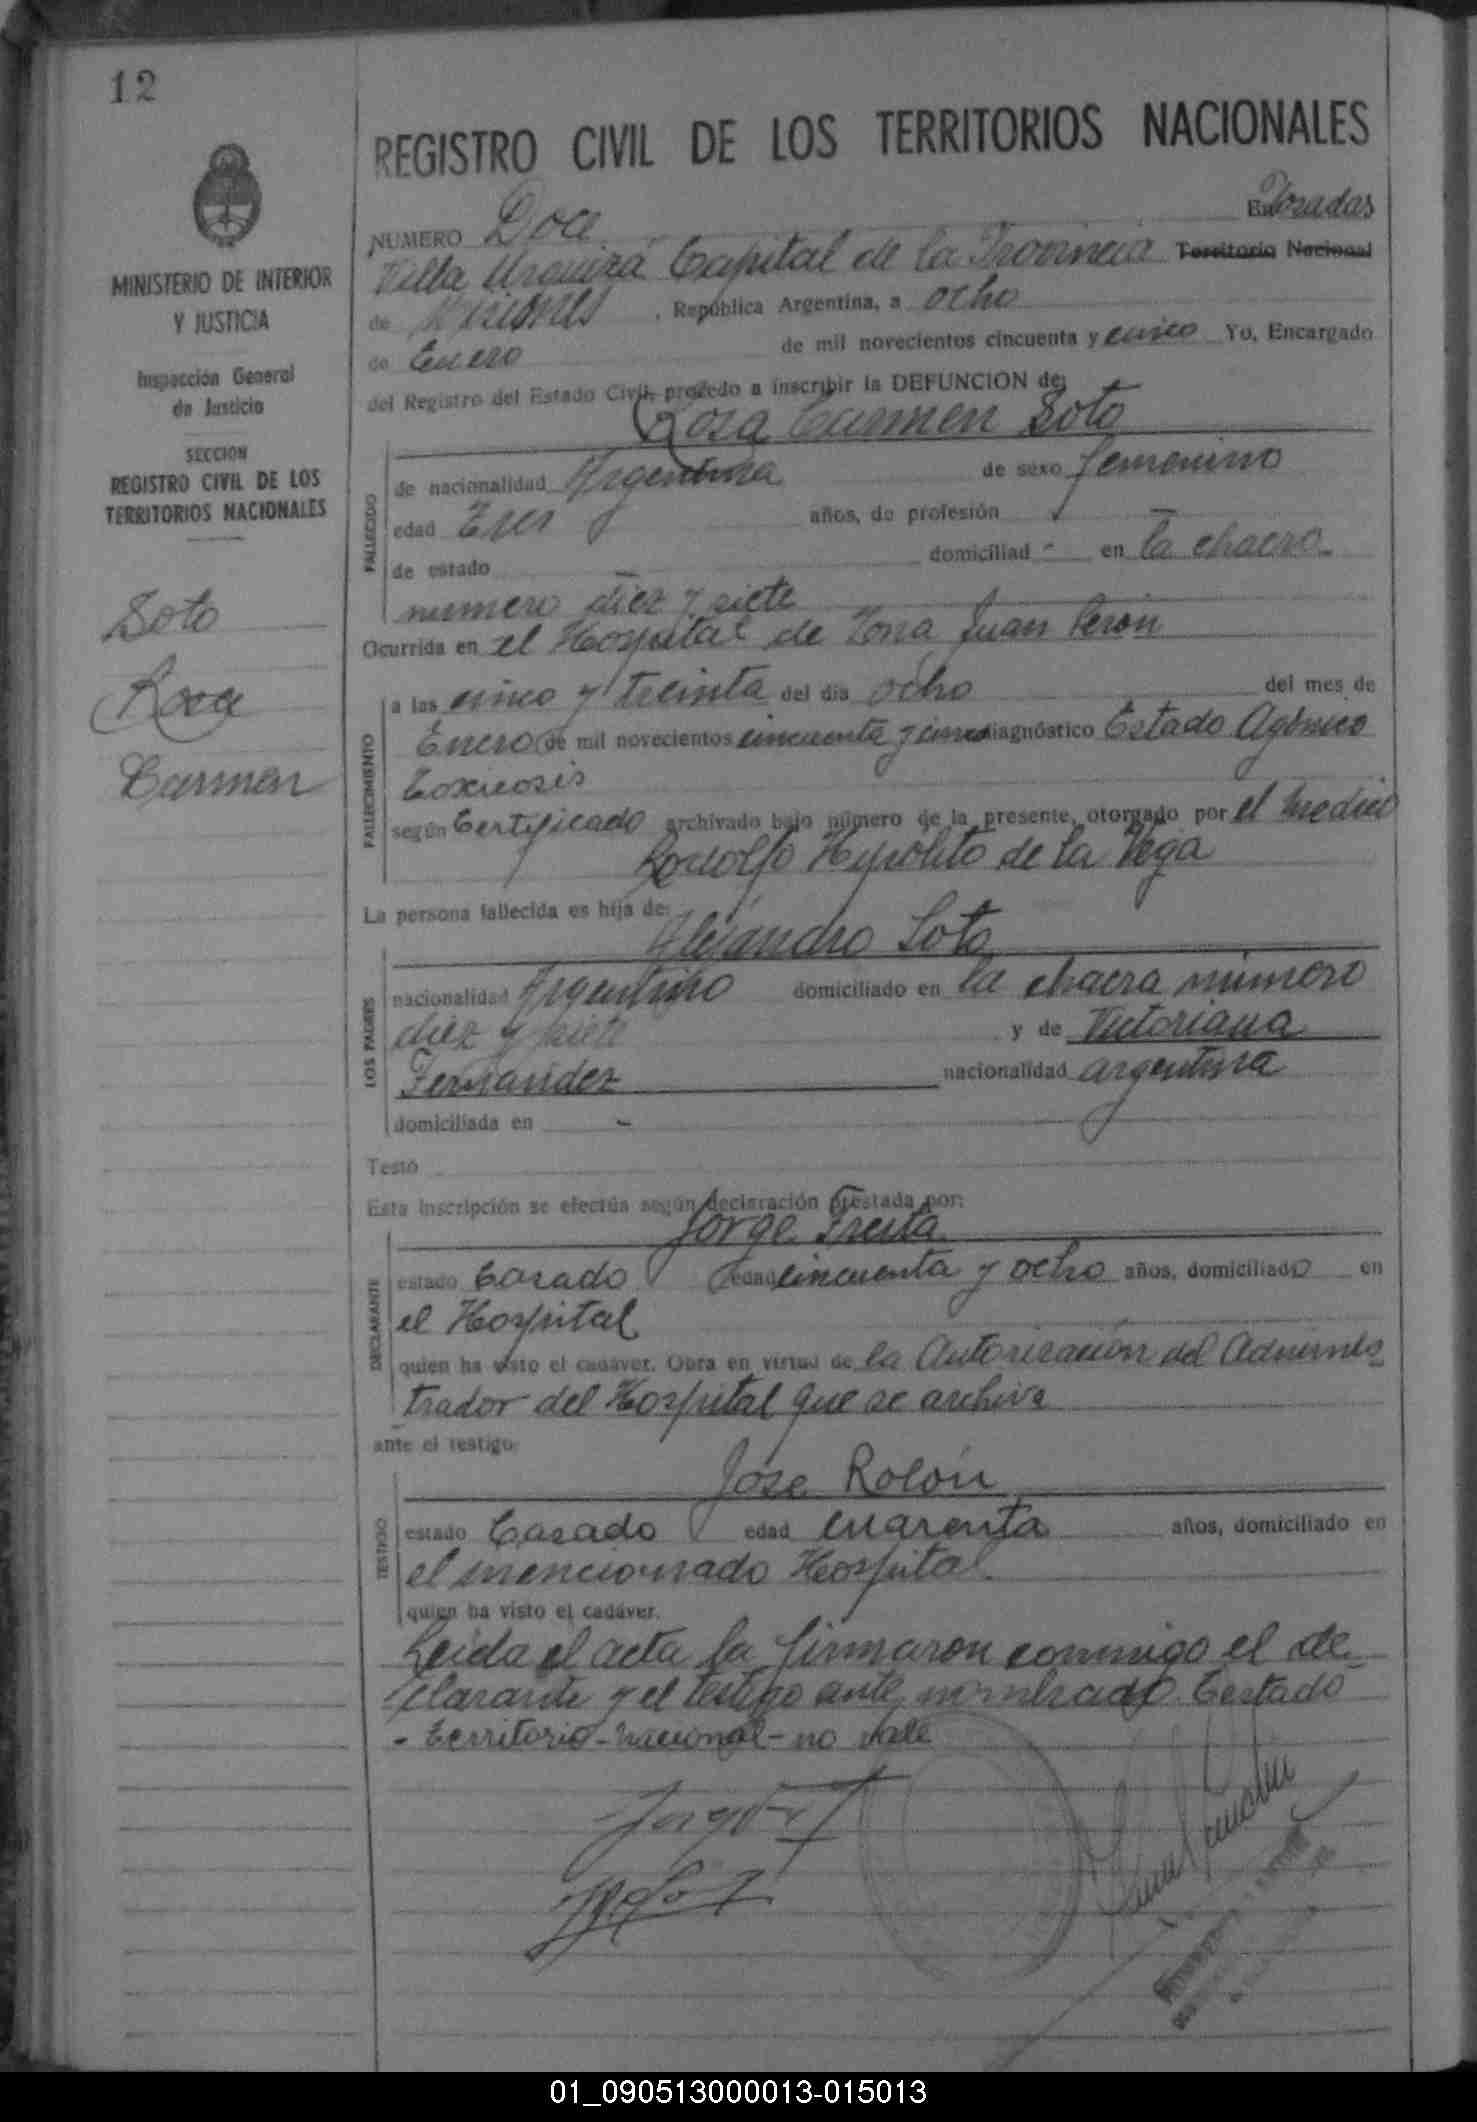 12
REGISTRO CIVIL DE LOS TERRITORIOS NACIONALES
MINISTERIO DE INTERIOR
Y JUSTICIA
Inspección General
de Justicia
SECCION
REGISTRO CIVIL DE LOS
TERRITORIOS NACIONALES
Soto
Rosa
Carmen
NUMERO Doce En Posadas
Villa Urquiza Capital de la Provincia Territorio Nacional
de Misiones, República Argentina, a ocho
de Enero de mil novecientos cincuenta y cinco Yo, Encargado
del Registro del Estado Civil, procedo a inscribir la DEFUNCION de:
Rosa Carmen Soto
FALLECIDO
de nacionalidad Argentina de sexo femenino
edad Tres años, de profesión -
de estado - domiciliad - en la chacra
numero diez y siete
Ocurrida en el Hospital de Zona Juan Peron
FALLECIMIENTO
a las cinco y treinta del día ocho del mes de
Enero de mil novecientos cincuenta y cinco diagnóstico Estado Agónico
Toxicosis
según Certificado archivado bajo número de la presente, otorgado por el medico
Rodolfo Hipolito de la Vega
La persona fallecida es hija de:
Alejandro Soto
LOS PADRES
nacionalidad Argentino domiciliado en la chacra numero
diez y siete y de Victoriana
Fernandez nacionalidad argentina
domiciliada en -
Testó
Esta inscripción se efectúa según declaración prestada por:
Jorge
DECLARANTE
estado Casado edad cincuenta y ocho años, domiciliado en
el Hospital
quien ha visto el cadáver. Obra en virtud de la Autorización del Adminis
trador del Hospital que se archiva
ante el testigo:
José Rolón
TESTIGO
estado Casado edad cuarenta años, domiciliado en
el mencionado Hospital
quien ha visto el cadáver.
Leida el acta la firmaron conmigo el de
clarante y el testigo ante nombrado Testado
- Territorio - Nacional - no vale
01_090513000013-015013